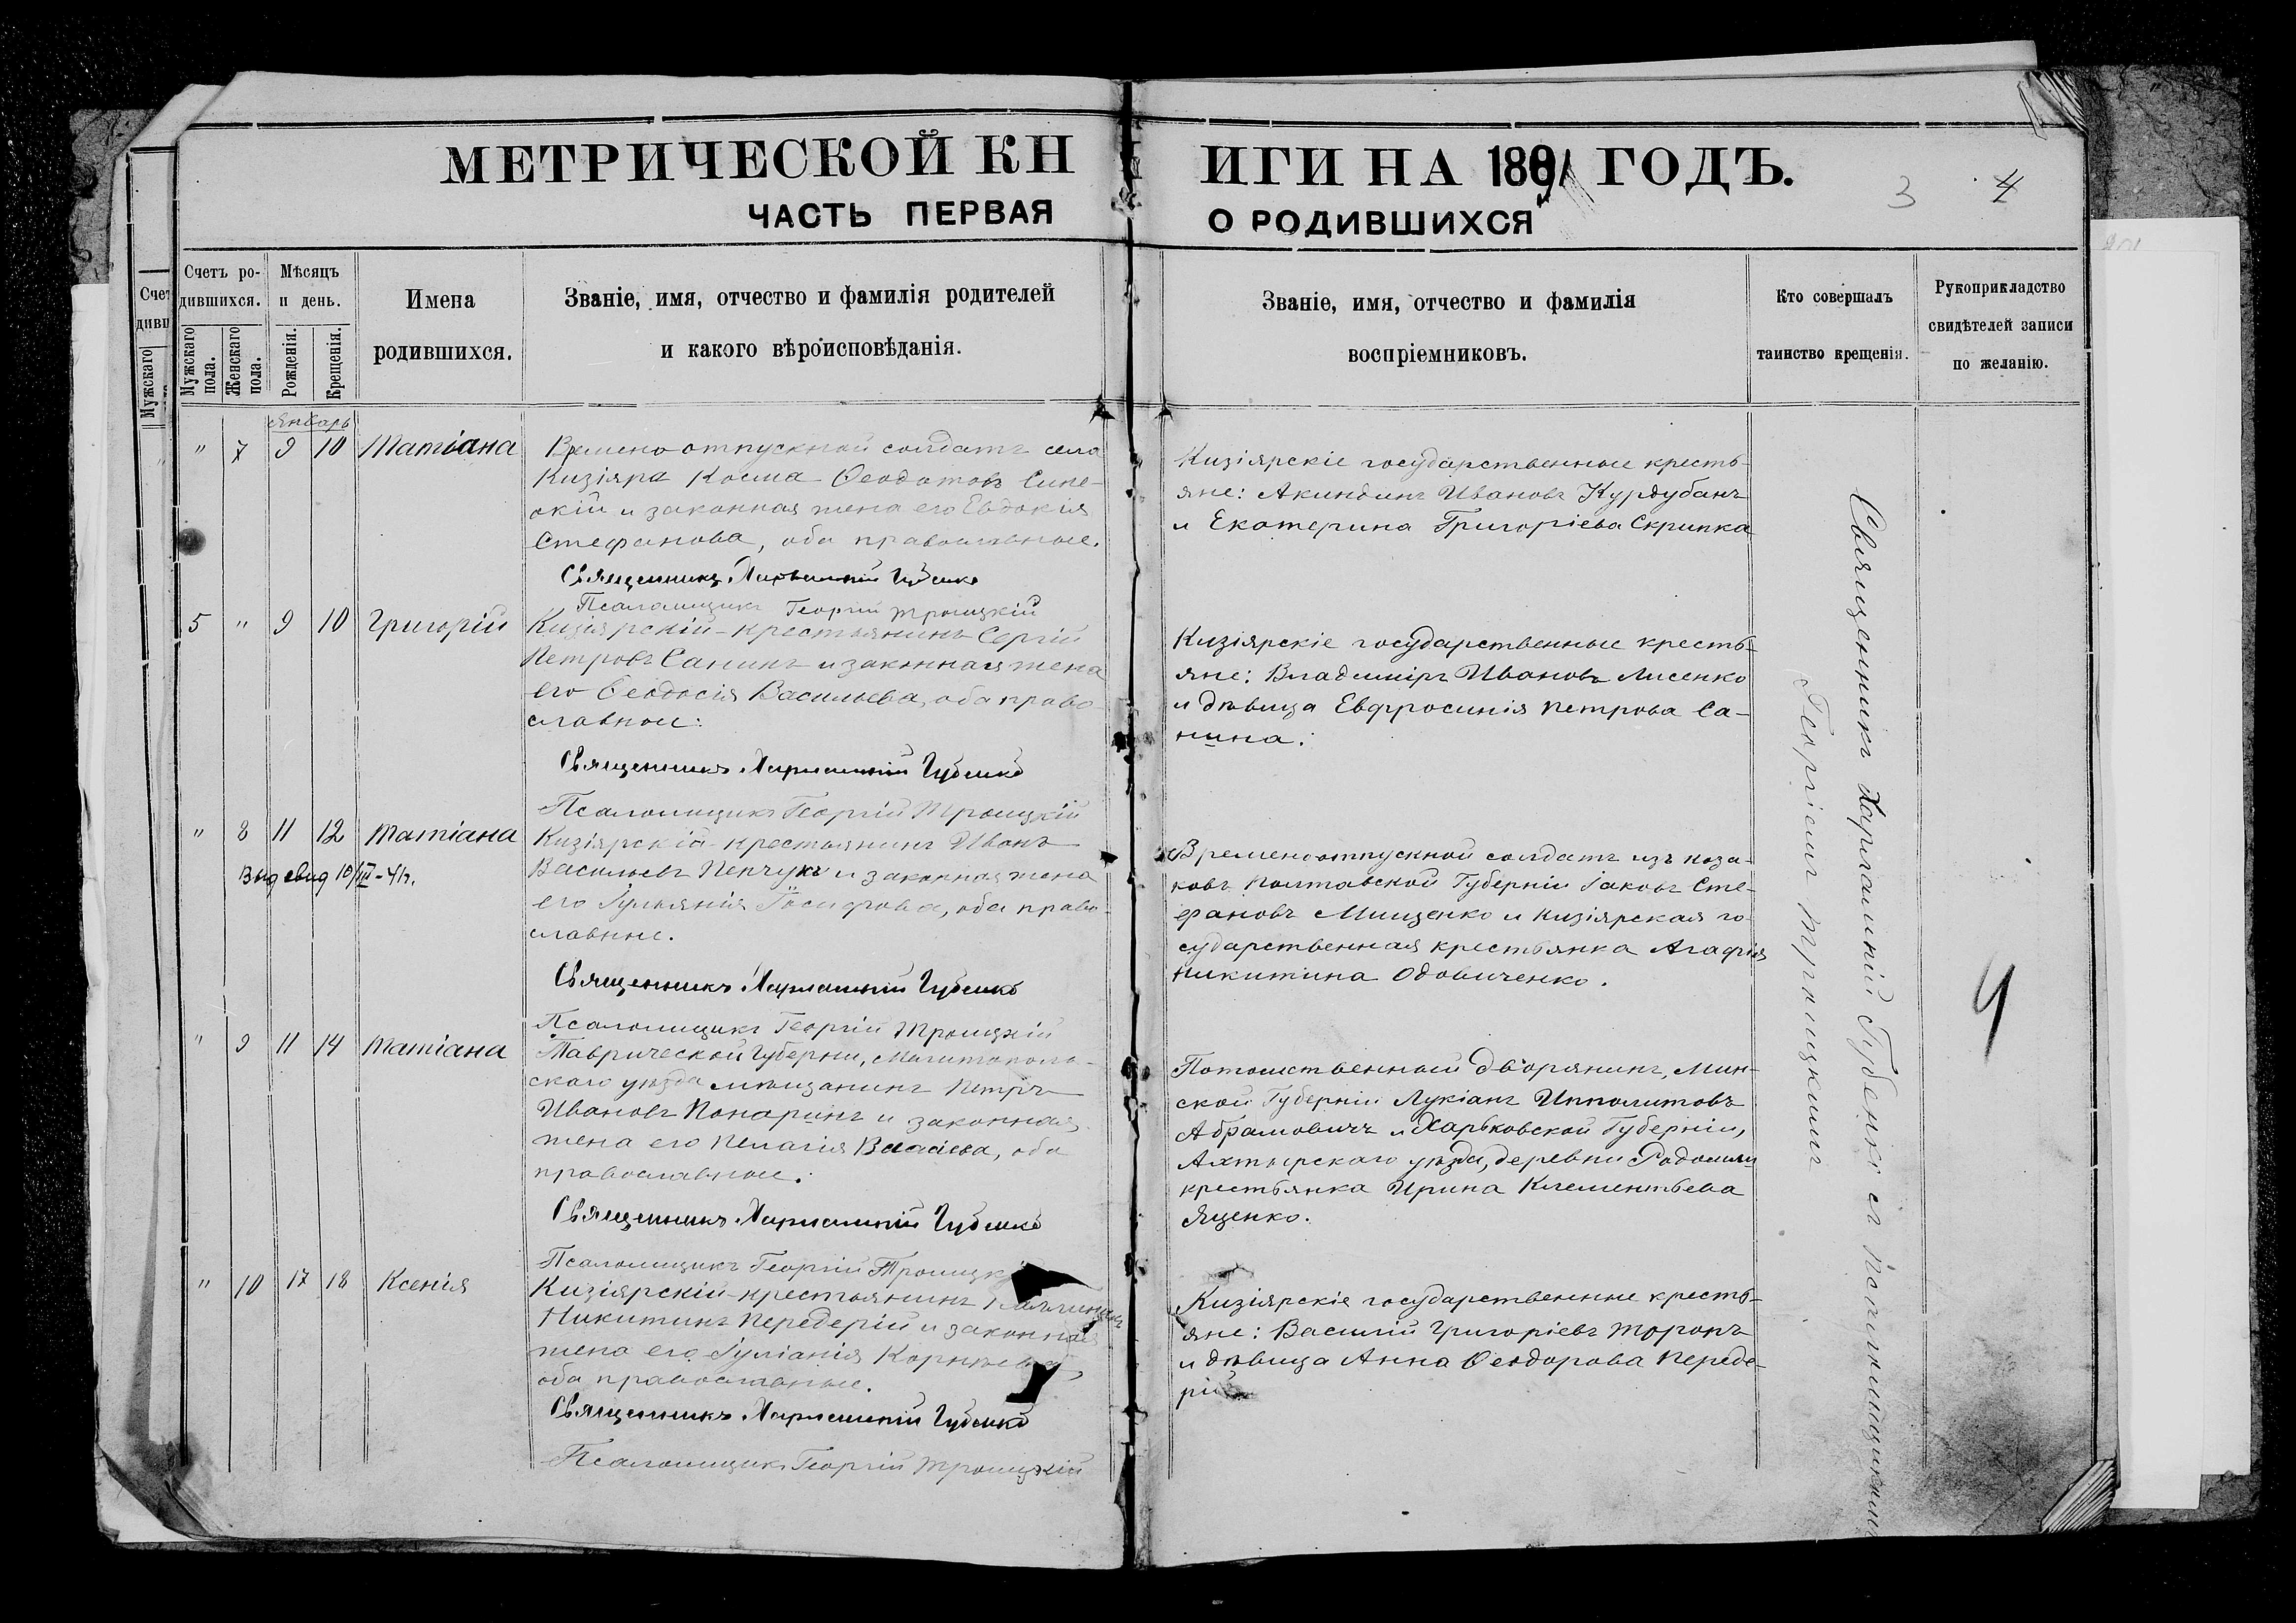 МЕТРИЧЕСКОЙ КНИГИ НА 1891 ГОДЪ.
ЧАСТЬ ПЕРВАЯ О РОДИВШИХСЯ
3 4
Счетъ родившихся.
Мужскаго пола.
Женскаго пола.
Мѣсяцъ и день.
Рожденія.
Крещенія.
Имена
родившихся.
Званіе, имя, отчество и фамилія родителей
и какого вѣроисповѣданія.
Званіе, имя, отчество и фамилія
воспріемниковъ.
Кто совершалъ
таинство крещенія.
Рукоприкладство
свидѣтелей записи
по желанію.
Январь
" 7 9 10 Татіана
Времено отпускной солдатъ села
Кизіяра Косма Ѳеодотовъ Сине-
окій и законная жена его Евдокія
Стефанова, оба православные.
Священникъ Харлампій Губенко
Псаломщикъ Георгій Троицкій
Кизіярскіе государственные кресть-
яне: Акиндинъ Ивановъ Курдубанъ
и Екатерина Григоріева Скрипка
5 " 9 10 Григорій
Кизіярскій крестьянинъ Сергій
Петровъ Санинъ и законная жена
его Ѳеодосія Васильева, оба право-
славные.
Священникъ Харлампій Губенко
Псаломщикъ Георгій Троицкій
Кизіярскіе государственные кресть-
яне: Владиміръ Ивановъ Лисенко
и дѣвица Евфросинія Петрова Са-
нина.
" 8 11 12 Татіана
Выд свид 10/III-41г.
Кизіярскій крестьянинъ Иванъ
Васильевъ Пенчукъ и законная жена
его Іуліанія Іосифова, оба право-
славные.
Священникъ Харлампій Губенко
Псаломщикъ Георгій Троицкій
Временоотпускной солдатъ изъ коза-
ковъ Полтавской Губерніи Іаковъ Сте-
фановъ Мищенко и Кизіярская го-
сударственная крестьянка Агафія
Никитина Одовиченко.
" 9 11 14 Татіана
Таврической Губерни, Мелитополь-
скаго уѣзда мѣщанинъ Петръ
Ивановъ Понаринъ и законная
жена его Пелагія Власіева, оба
православные.
Священникъ Харлампій Губенко
Псаломщикъ Георгій Троицкій
Потомственный дворянинъ, Мин-
ской Губерніи Лукіанъ Ипполитовъ
Абрамовичъ и Харьковской Губерніи,
Ахтырскаго уѣзда, деревни
крестьянка Ирина Клементьева
Яценко.
" 10 17 18 Ксенія
Кизіярскій крестьянинъ
Никитинъ Передерій и законная
жена его Іуліанія Корнѣева,
оба православные.
Священникъ Харлампій Губенко
Псаломщикъ Георгій Троицкій
Кизіярскіе государственные кресть-
яне: Василій Григоріевъ Торонъ
и дѣвица Анна Ѳеодорова Переде-
рій
Священникъ Харлампій Губенко съ Псаломщикомъ
Георгіемъ Троицкимъ
4